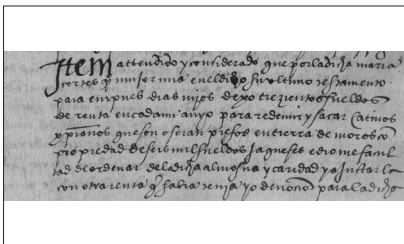 Item attendido y considerado que por la dicha maria
cortes q̃ en el dicho su ultimo testamento
para en tpõs dias mios dexo trezientos sueldos
de renta en cada un anyo para redemir y sacar cativos
xp̃ianos que son o seran presos en tierra de moros co
propiedad de seis mil sueldos Jaqueses e diome facul
tad de ordenar de la dicha almosna y caridad y ajustarla
con otra renta q̃ habia e tenia yo devocion para la dicha